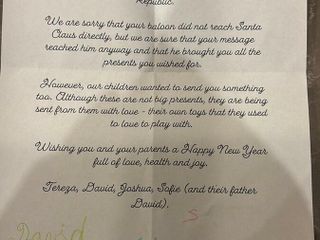 Republic.
We are sorry that your baloon did not reach Santa
Claus directly, but we are sure that your message
reached him anyway and that he brought you all the
presents you wished for.
However, our children wanted to send you something
too. Although these are not big presents, they are being
sent from them with love - their own toys that they used
to love to play with.
Wishing you and your parents a Happy New Year
full of love, health and joy.
Tereza, David, Joshua, Sofie (and their father
David).
David
S